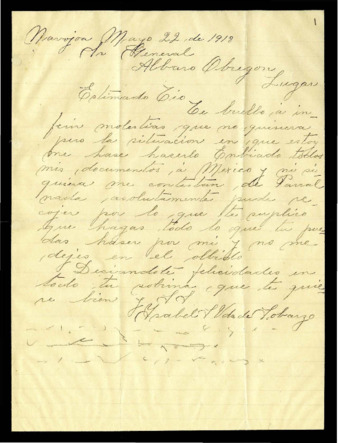 1
Navojoa Mayo 22 de 1919
Sr General
Albaro Obregon
Lugar
Estimado Tio
Te buelbo á in-
ferir molestias, que no quisiera
pero la situacion en que estoy
me hase hacerlo Enbiado todos
mis documentos á Mexico y ni si
quiera me contestan de Parral
nada, asolutamente pude re-
cojer por lo que te suplico
que hagas todo lo que tu pue-
das haser por mi y no me
dejes en el olbido
Deseandote felicidades en
todo tu sobrina, que te quie-
re bien y
Ysabel Vda de Tobar